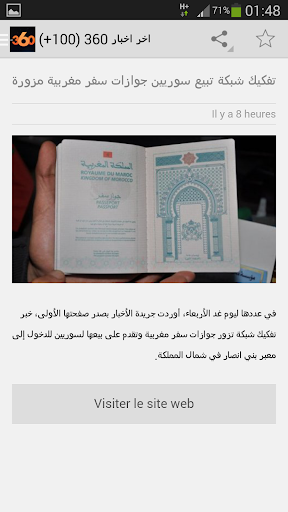 H+ 71% 01:48
360 اخر اخبار 360 (+100)
تفكيك شبكة تبيع سوريين جوازات سفر مغربية مزورة
Il y a 8 heures
المملكة المغربية
ROYAUME DU MAROC
KINGDOM OF MOROCCO
جواز سفر
PASSEPORT
PASSPORT
في عددها ليوم غد الأربعاء، أوردت جريدة الأخبار بصدر صفحتها الأولى، خبر
تفكيك شبكة تزور جوازات سفر مغربية وتقدم على بيعها لسوريين للدخول إلى
معبر بني انصار في شمال المملكة.
Visiter le site web